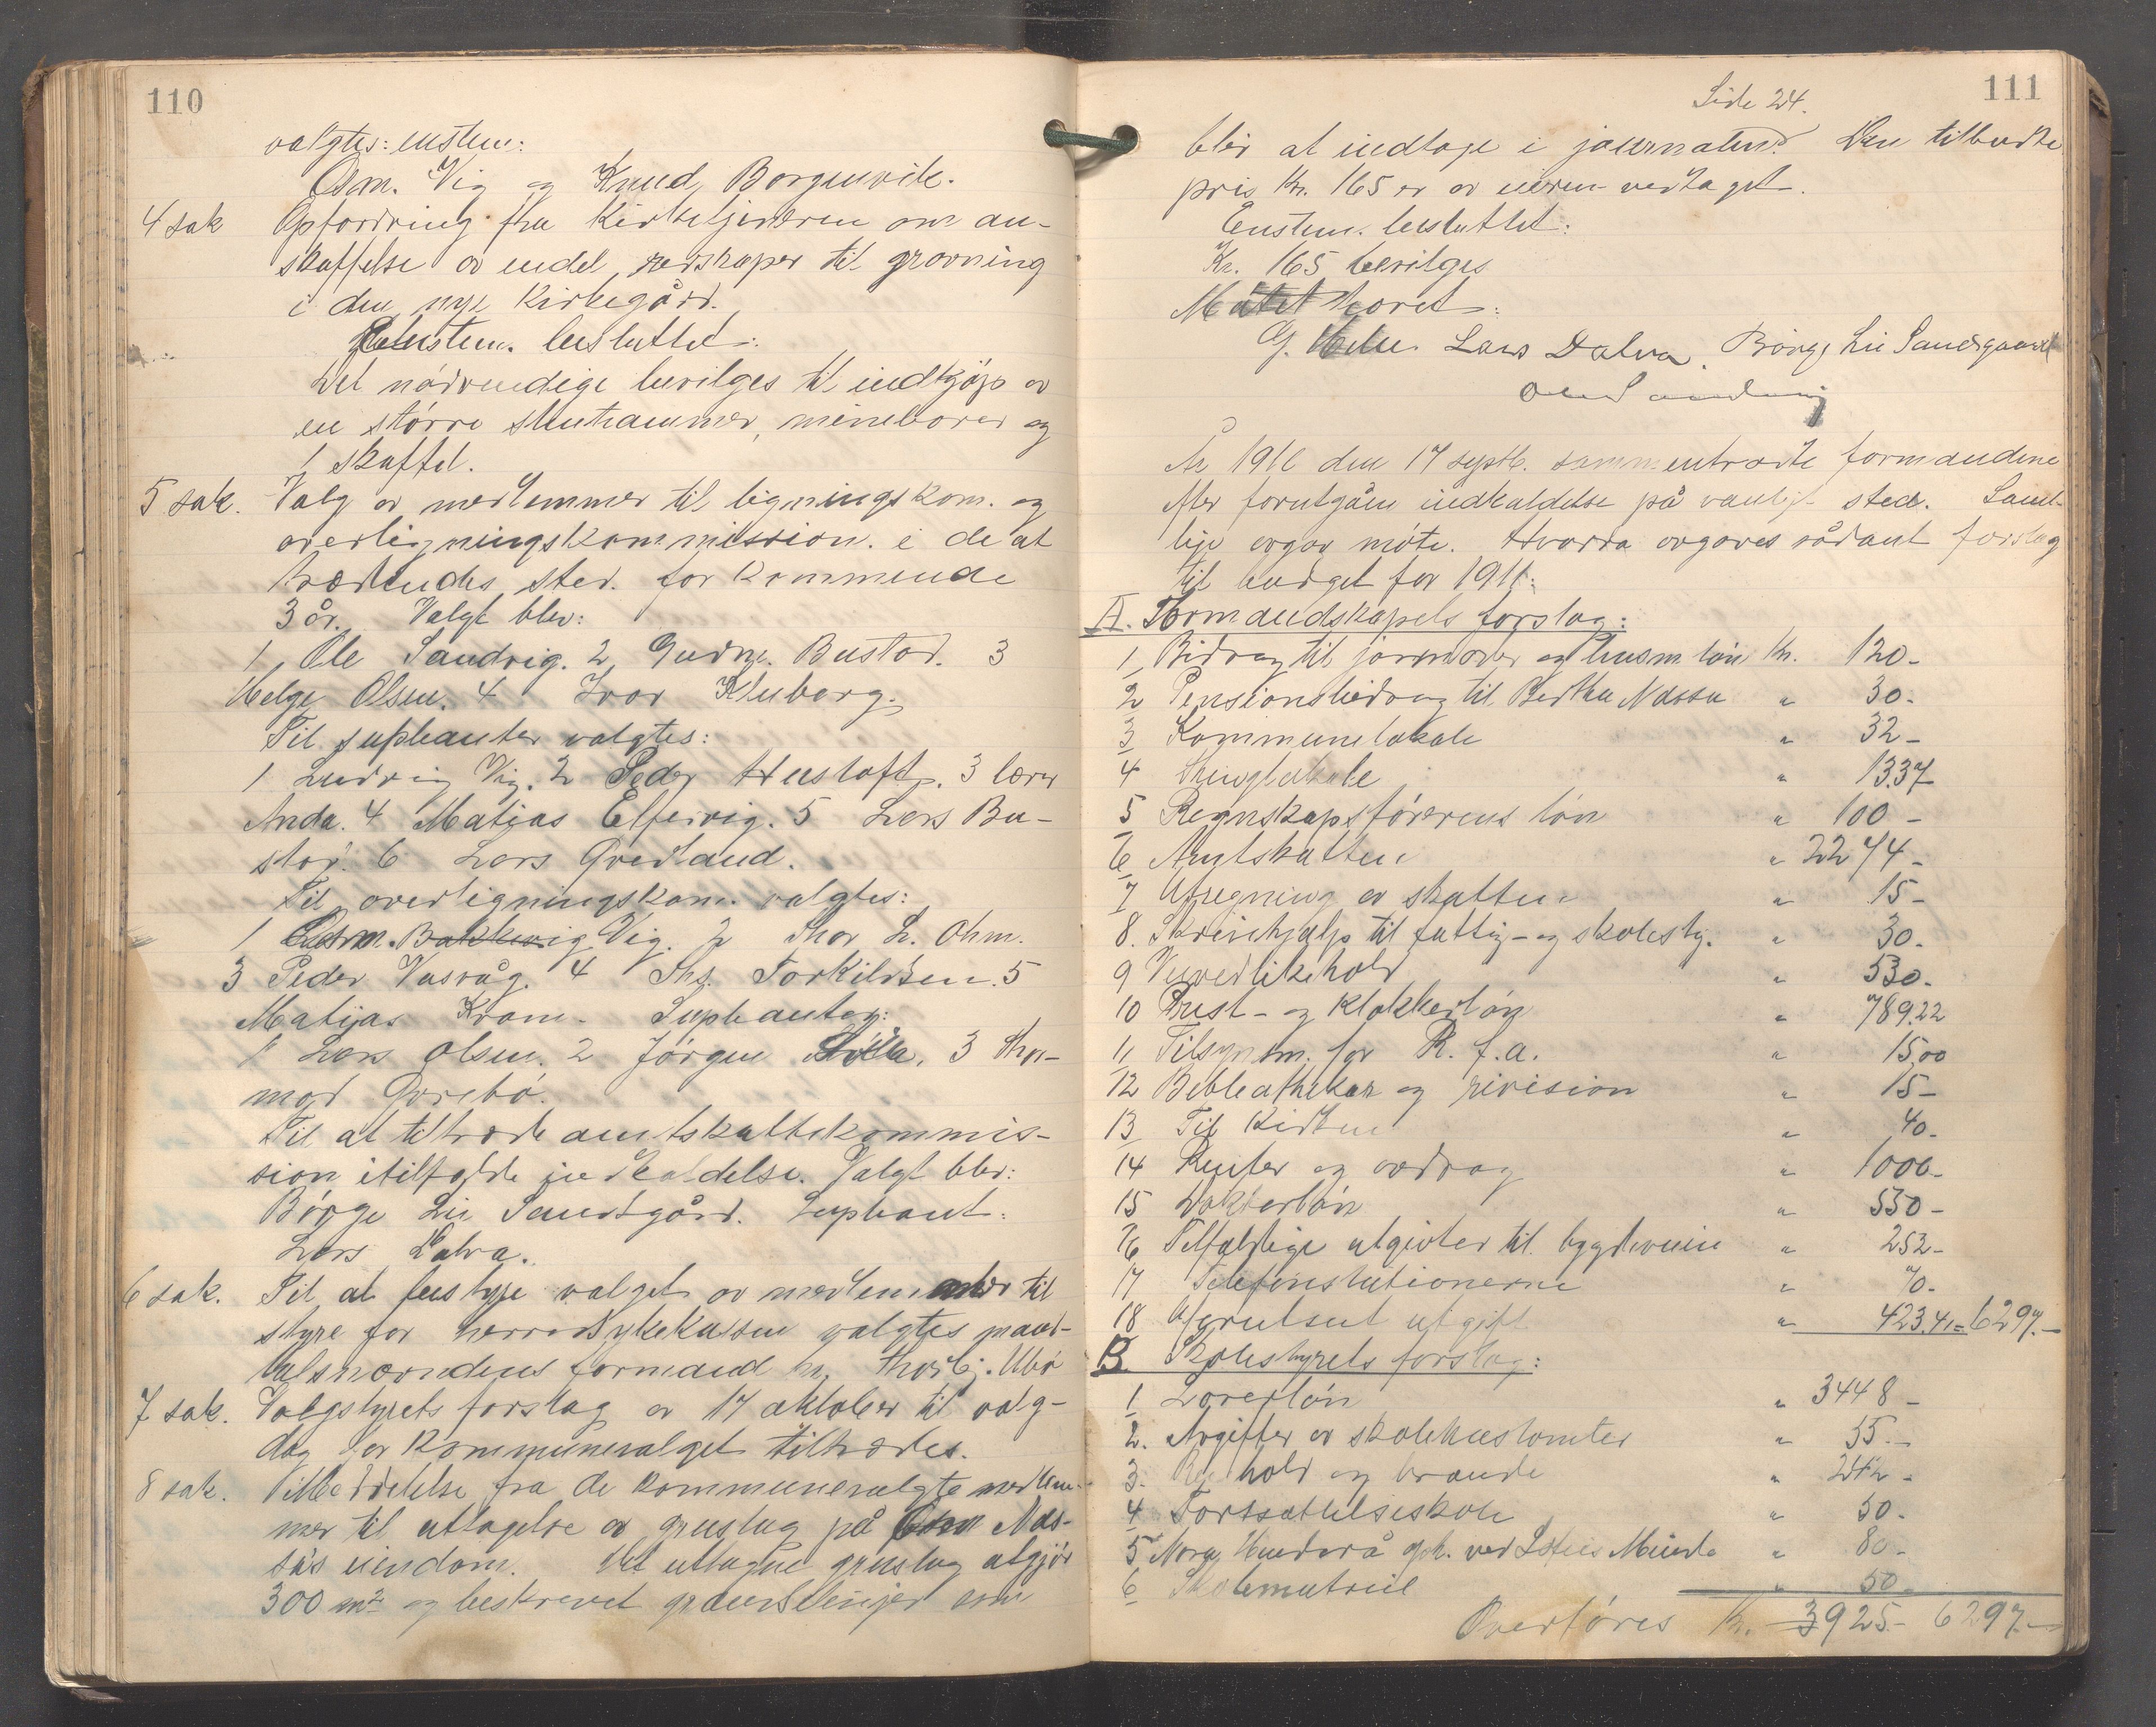 110
valgtes: enstem:
Osm. Vig og Knud Borgenvik.
4 sak Opfordring fra Kirketjeneren om an-
skaffelse av endel redskaper til gravning
i den nye Kirkegård.
Enstem. besluttet:
Det nødvendige bevilges til indkjøp av
en større stenhammer, mineborer og
1 skaffel.
5 sak. Valg av medlemmer til ligningskom. og
overligningskommission i de at
trædendes sted for kommende
3 år. Valgt blev:
1, Ole Sandvig. 2, Gudm. Bustad. 3
Helge Olsen. 4 Ivar Kluborg.
Til supleanter valgtes:
1 Ludvig Vig. 2 Peder Hustoft. 3 lærer
Anda. 4 Matias Elfervig. 5 Lars Bu-
stad. 6 Lars Qvedland.
Til overligningskom. valgtes:
1 Osm. Vig. 2 Thor L. Ohm.
3 Peder Vasvåg. 4 Ths. Torkildsen. 5
Matijas Krom. Supleanter:
1 Lars Olsen. 2 Jørgen 3 Thor-
mod Gorebø.
Til at tiltræde amtskattekommis-
sion i tilfælde indkaldelse. Valgt blev:
Børge Lie Sandsgård. Supleant:
Lars Dalva.
6 sak. Til at bestyre valget av medlemmer til
styre for herredsykekassen valgtes mand-
talsnævndens formand hr. Thorbj. Ubø
7 sak. Valgstyrets forslag av 17 oktober til valg-
dag for Kommunevalget tiltrædes.
8 sak. Meddelelse fra de kommunevalgte medlem-
mer til uttagelse av grustag på Nas-
sas eiendom. Det uttagne grustag utgjør
300 m² og beskrevet grænselinjer som
Side 24.
111
blir at indtage i journalen. Den tilbudte
pris Kr. 165 er av eieren vedtaget.
Enstem. besluttet:
Kr. 165 bevilges
Møtet hævet:
G. Lars Dalva. Børge Lie Sandsgaard
År 1910 den 17 septb. sammentraadte formændene
efter forutgåen indkaldelse på vanligt sted. Samt-
lige avgav møte. Hvorda avgaves sådant forslag
til budget for 1911:
A. Formandskapets forslag:
1, Bidrag til jormoder og husm løn Kr. 120-
2 Pensionsbidrag til Berthe Nassa " 30-
3 Kommunelokale " 32-
4 Thinglokale " 13.37
5 Regnskapsførerens løn " 100-
6 Amtskatten " 2244-
7 Utregning av skatten " 15-
8. Skrivehjælp til fattig- og skolesty. " 30-
9 Veivedlikehold " 530-
10 Prest- og klokkerløn " 789.22
11 Tilsynsm. for R. f. a. " 15.00
12 Bibleathekar og revision " 15-
13 Til Kirken " 40-
14 Renter og avdrag " 1000-
15 Doktorløn " 550-
16 Tilfældige utgivter til bygdeveie " 252-
17 Telefonstationerne " 70-
18 Uforutsent utgift " 423.41 = 6297.-
B. Skolestyrets forslag:
1 Lærerløn " 3448-
2. Avgifter av skolehustomter " 55.-
3. Renhold og brænde " 242-
4 Fortsættelseskole " 50-
5 Nora Hinderå oph. ved " 80-
6 Skolemateriel " 50-
Overføres Kr. 3925.- 6297.-